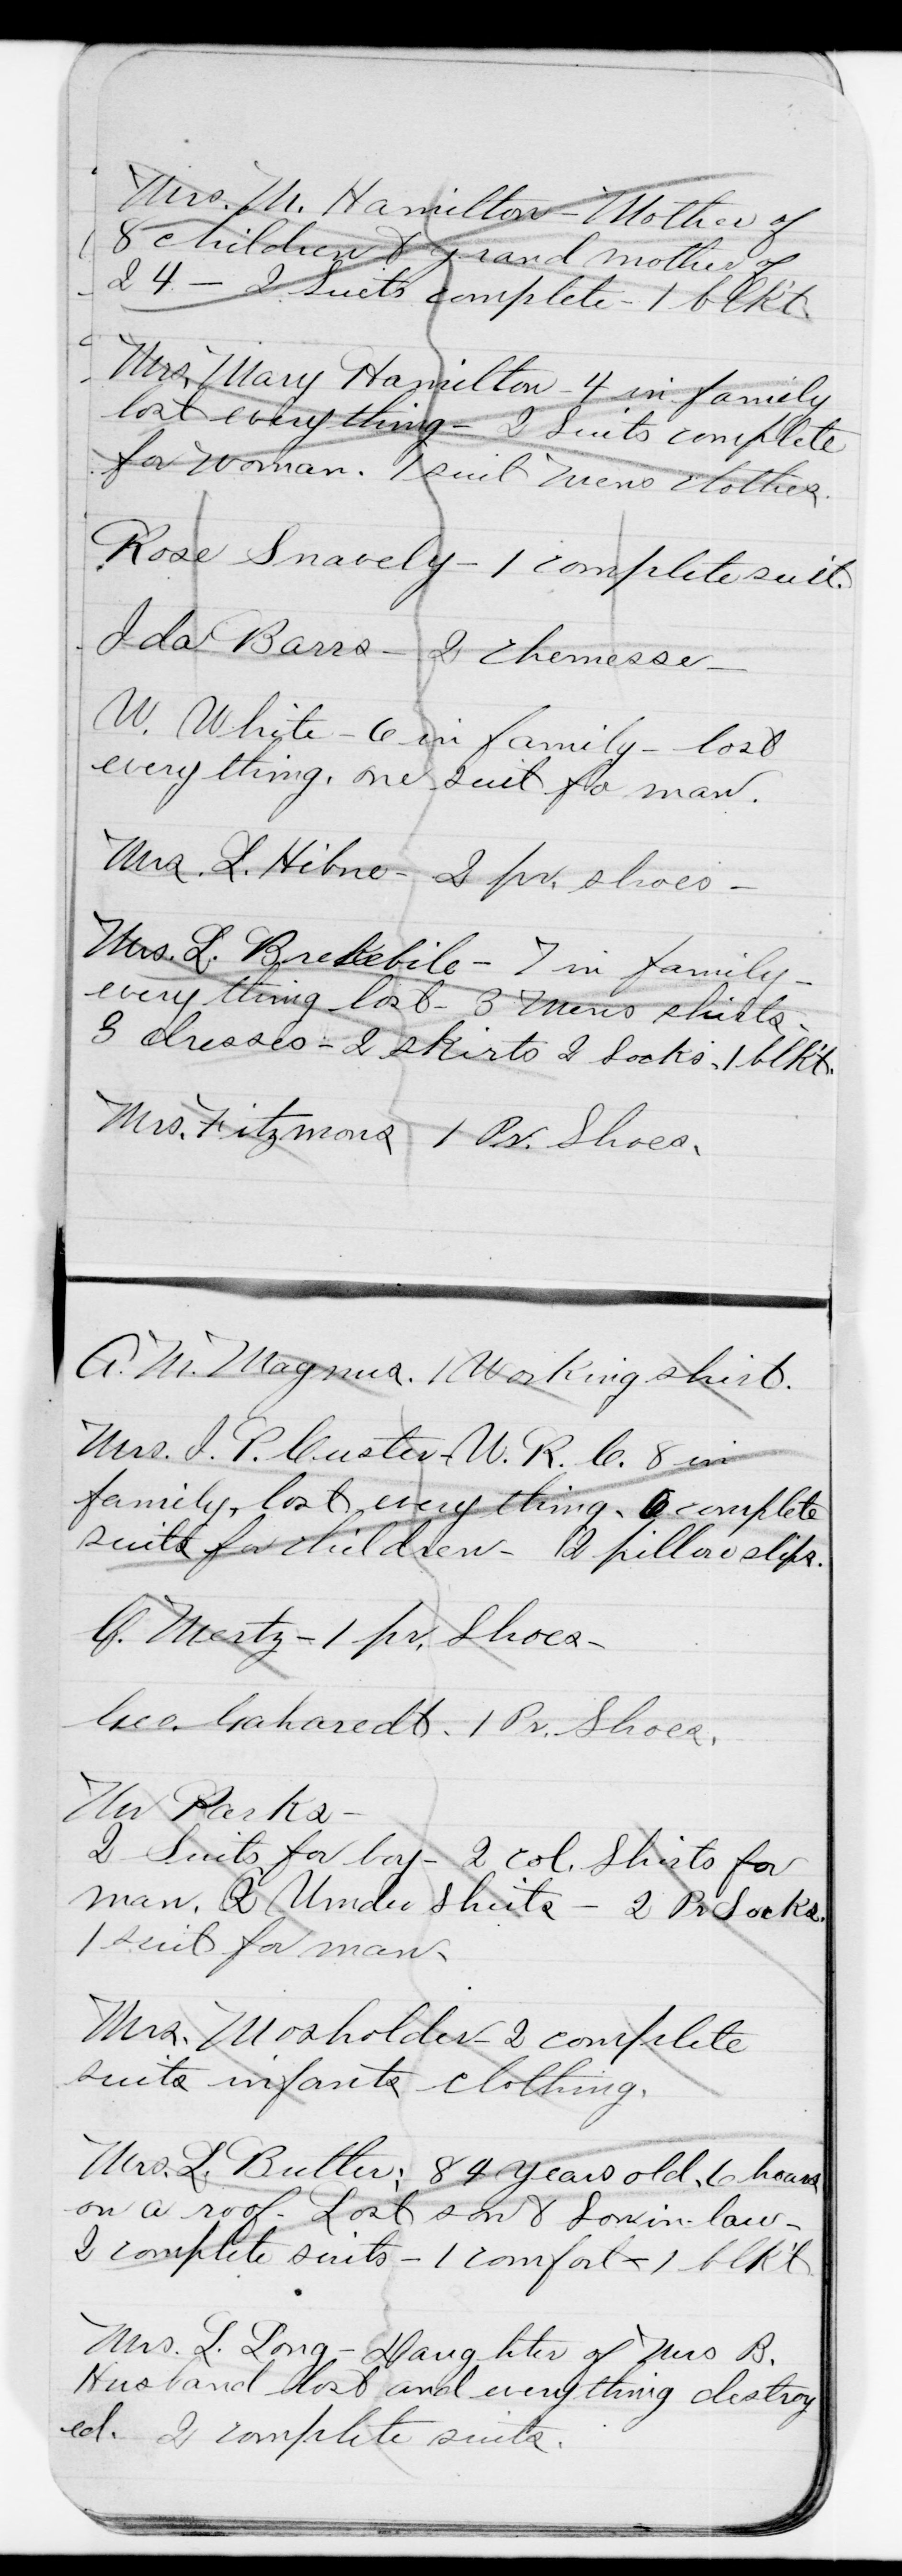 Mrs. M. Hamilton - Mother of
8 children & grand mother of
24 - 2 Suits complete - 1 blk't.
Mrs. Mary Hamilton - 4 in family
lost every thing - 2 Suits complete
for woman. 1 suit mens clothes.
Rose Snavely - 1 complete suit.
Ida Barrs - 2 chemesse -
W. White - 6 in family - lost
every thing. one suit fo man.
Mrs. L. Hibne - 2 pr. shoes -
Mrs. L. Brekebile - 7 in family -
every thing lost - 3 mens shirts -
3 dresses - 2 skirts 2 Socks. 1 blk't.
Mrs. Fitzmons 1 Pr. Shoes.
A. M. Magnus. 1 Working shirt.
Mrs. J. P. Custer - W. R. C. 8 in
family, lost every thing. 6 complete
suits for children - 12 pillow slips.
C. Mertz - 1 pr. Shoes -
Geo. 1 Pr. Shoes.
Mr Parks -
2 Suits for boy - 2 col. Shirts for
man. 2 Under Shirts - 2 Pr Socks.
1 suit for man.
Mrs. Mosholder - 2 complete
suits infants clothing.
Mrs. L. Butler; 84 years old. 6 hours
on a roof. Lost son & Son in-law -
2 complete suits - 1 comfort - 1 blk't
Mrs. L. Long - Daughter of Mrs B.
Husband lost and everything destroy
ed. 2 complete suits.